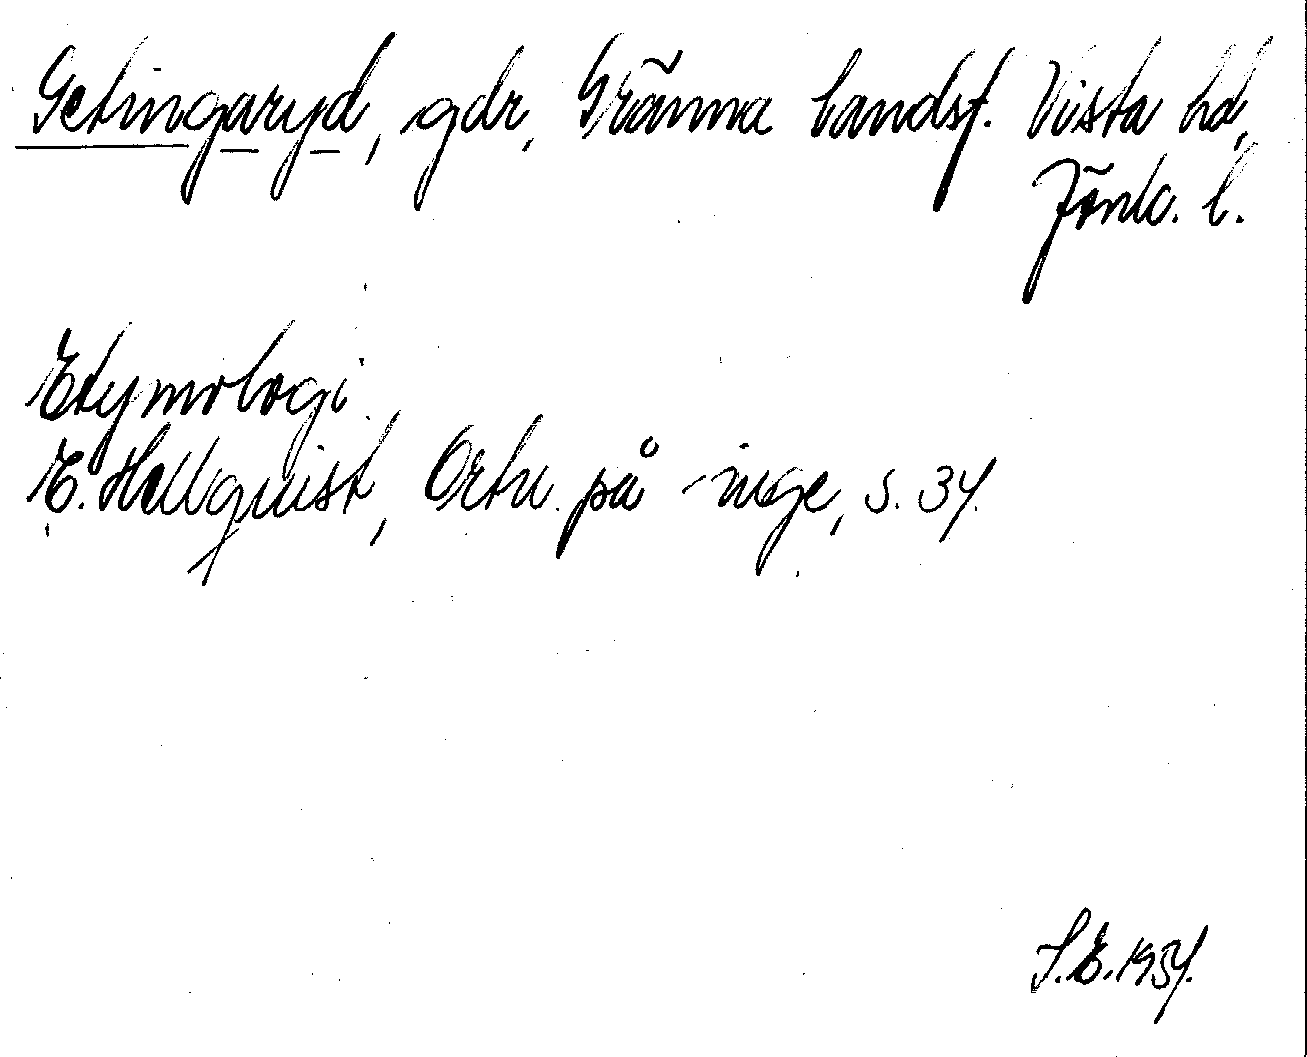 Getingaryd, gdr, Gränna landsf. Vista hd,
Jönk. l.
Etymologi
E. Hellquist, Ortn. på -inge, s. 34.
S.E. 1954.